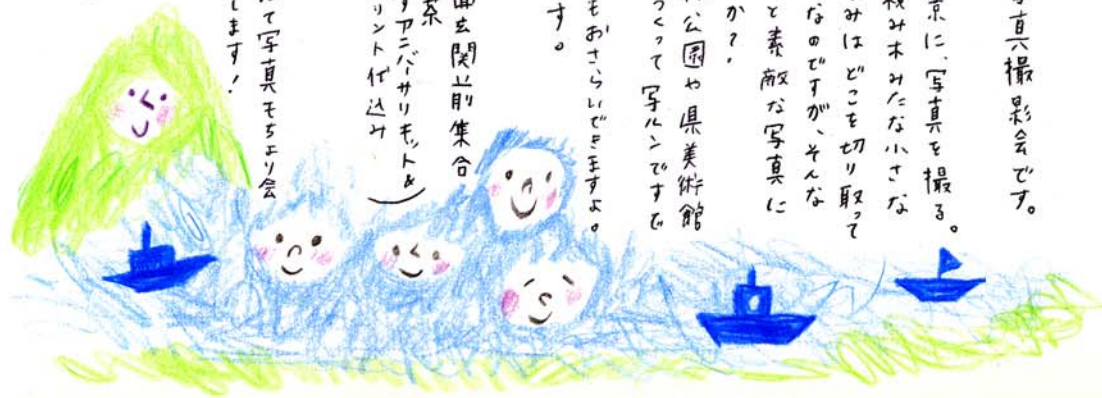 写真撮影会です。
景に、写真を撮る。
積み木みたな小さな
みはどこを切り取って
なのですが、そんな
と素敵な写真に
か?
公園や県美術館
つくって写ルンですで
もおさらいできますよ。
す。
面玄関前集合
茶
すアニバーサリキット&
リント代込み)
て写真もちより会
します!